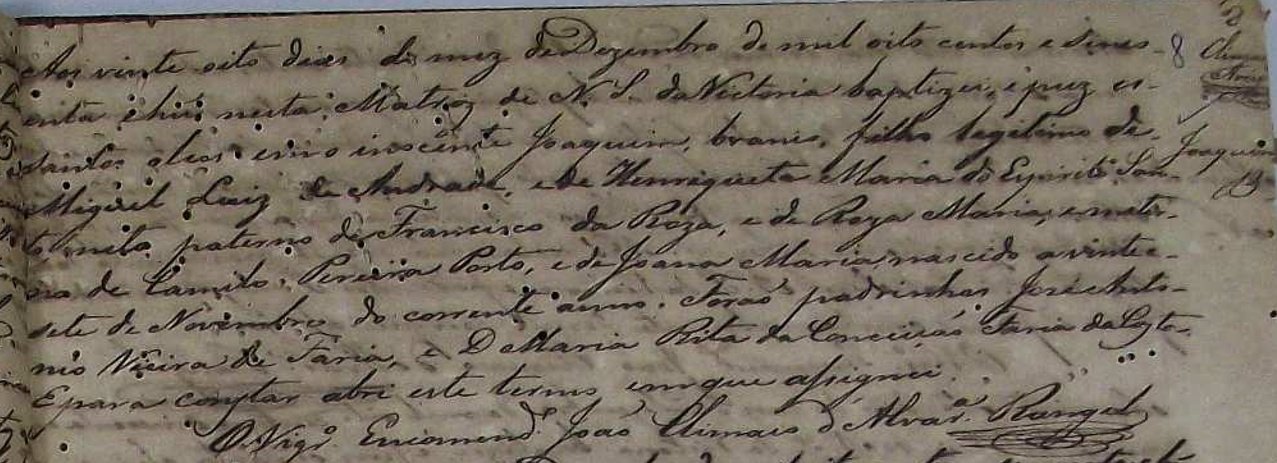 Aos vinte oito dias do mez de Dezembro de mil oito centos e sinco-
enta e hũ nesta Matriz de N. S. da Victoria baptizei, e puz os
Santos oleos o innocente Joaquim, branco, filho legitimo de
Miguel Luiz de Andrade, e de Henriqueta Maria do Espirito San-
to, neto paterno de Francisco da Roza, e de Roza Maria, e mater-
no de Camilo Pereira Porto, e de Joana Maria, nascido a vinte e
sete de Novembro do corrente anno. Foraõ padrinhos José Anto-
nio Vieira de Faria, e D Maria Rita da Conceiçaõ Faria da Costa.
E para constar abri este termo em que assignei.
O Vigr.º Encomend.º Joaõ Climaco d'Alvar.ª Rangel
8
Joaquim
B